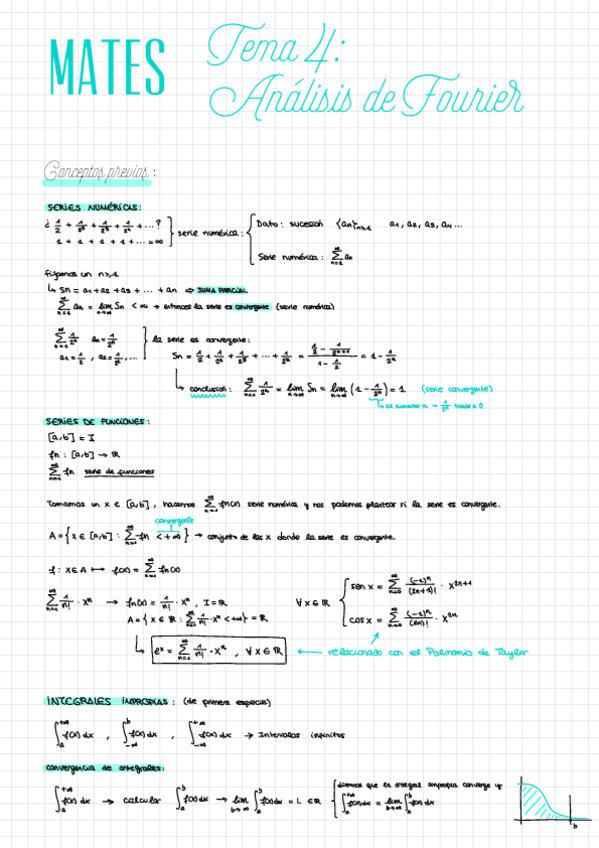 MATES
Tema 4:
Análisis de Fourier
Conceptos previos:
SERIES NUMÉRICAS:
¿ 1/2 + 1/2² + 1/2³ + 1/2⁴ + ...?
1 + 1 + 1 + 1 + 1 + ... = ∞
serie numérica:
Dato: sucesión {an}n≥1 a1, a2, a3, a4...
Serie numérica: ∑ n=1 ∞ an
Fijamos un n≥1
↳ Sn = a1+a2+a3+...+an ⇨ SUMA PARCIAL
∑ n=1 ∞ an = lim n→∞ Sn < ∞ → entonces la serie es convergente (serie numérica)
∑ n=1 ∞ 1/2ⁿ an = 1/2ⁿ
a1 = 1/2, a2 = 1/2², ...
la serie es convergente:
Sn = 1/2 + 1/2² + 1/2³ + ... + 1/2ⁿ = (1/2 - 1/2ⁿ⁺¹)/(1 - 1/2) = 1 - 1/2ⁿ
↳ conclusión: ∑ n=1 ∞ 1/2ⁿ = lim n→∞ Sn = lim n→∞ (1 - 1/2ⁿ) = 1 (serie convergente)
↳ al aumentar n → 1/2ⁿ tiende a 0
SERIES DE FUNCIONES:
[a,b] = I
fn : [a,b] → ℝ
∑ n=1 ∞ fn serie de funciones
Tomamos un x ∈ [a,b], hacemos ∑ n=1 ∞ fn(x) serie numérica y nos podemos plantear si la serie es convergente.
convergente
A = {x ∈ [a,b] : ∑ n=1 ∞ fn < +∞} → conjunto de los x donde la serie es convergente.
f : x ∈ A ⟼ f(x) = ∑ n=1 ∞ fn(x)
∑ n=1 ∞ 1/n! · xⁿ → fn(x) = 1/n! · xⁿ, I = ℝ
A = {x ∈ ℝ : ∑ n=1 ∞ 1/n! · xⁿ < +∞} = ℝ
∀x ∈ ℝ
sen x = ∑ n=0 ∞ (-1)ⁿ/(2n+1)! · x²ⁿ⁺¹
cos x = ∑ n=0 ∞ (-1)ⁿ/(2n)! · x²ⁿ
↳ eˣ = ∑ n=1 ∞ 1/n! · xⁿ, ∀x ∈ ℝ ← relacionado con el Polinomio de Taylor
INTEGRALES IMPROPIAS: (de primera especie)
∫ a +∞ f(x) dx, ∫ -∞ b f(x) dx, ∫ -∞ +∞ f(x) dx → Intervalos infinitos
convergencia de integrales:
∫ a +∞ f(x) dx → calcular ∫ a b f(x) dx → lim b→∞ ∫ a b f(x) dx = L ∈ ℝ
diremos que la integral impropia converge y
∫ a +∞ f(x) dx = lim b→∞ ∫ a b f(x) dx
b